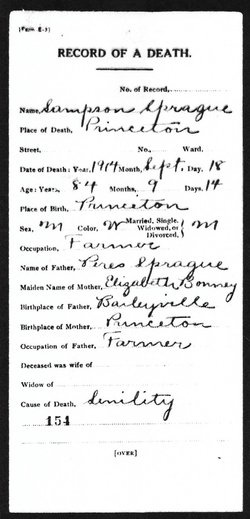 [Form E-3]
RECORD OF A DEATH.
No. of Record,
Name, Sampson Sprague
Place of Death, Princeton
Street, No., Ward.
Date of Death: Year, 1914 Month, Sept. Day, 18
Age: Years, 84 Months, 9 Days, 14
Place of Birth, Princeton
Sex, M Color, W Married, Single, Widowed, or Divorced, } M
Occupation, Farmer
Name of Father, Peres Sprague
Maiden Name of Mother, Elizabeth Bonney
Birthplace of Father, Baileyville
Birthplace of Mother, Princeton
Occupation of Father, Farmer
Deceased was wife of
Widow of
Cause of Death, Senility
154
[OVER]